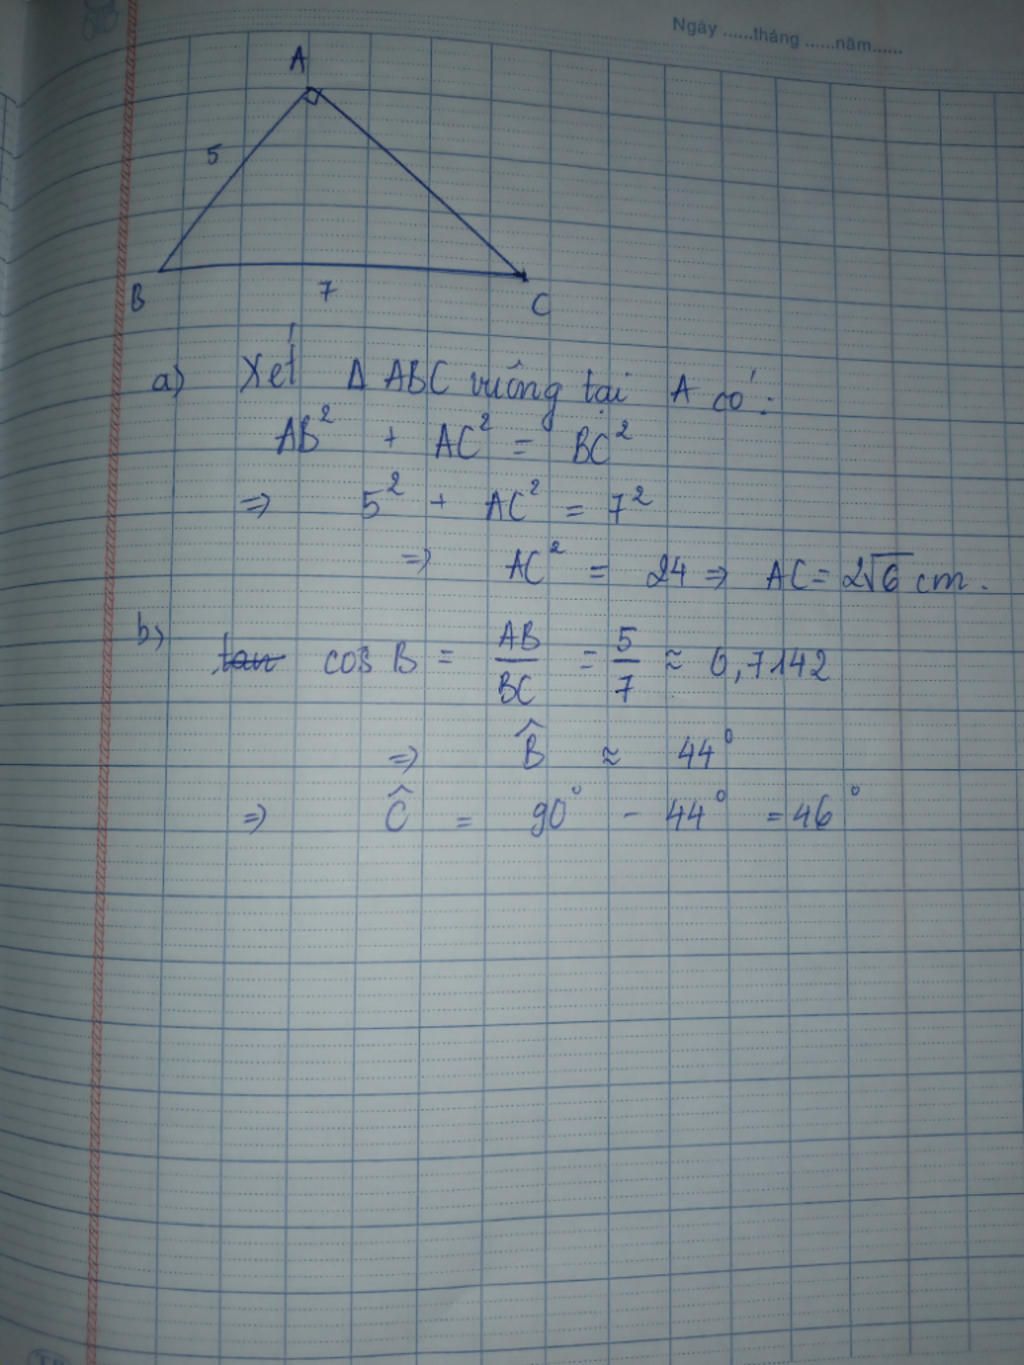 Ngày ......tháng ......năm......
A
5
B
7
C
a) Xét Δ ABC vuông tại A có:
AB² + AC² = BC²
=> 5² + AC² = 7²
=> AC² = 24 => AC = 2√6 cm.
b) tan cos B = AB/BC = 5/7 ≈ 0,7142
=> B̂ ≈ 44°
=> Ĉ = 90° - 44° = 46°